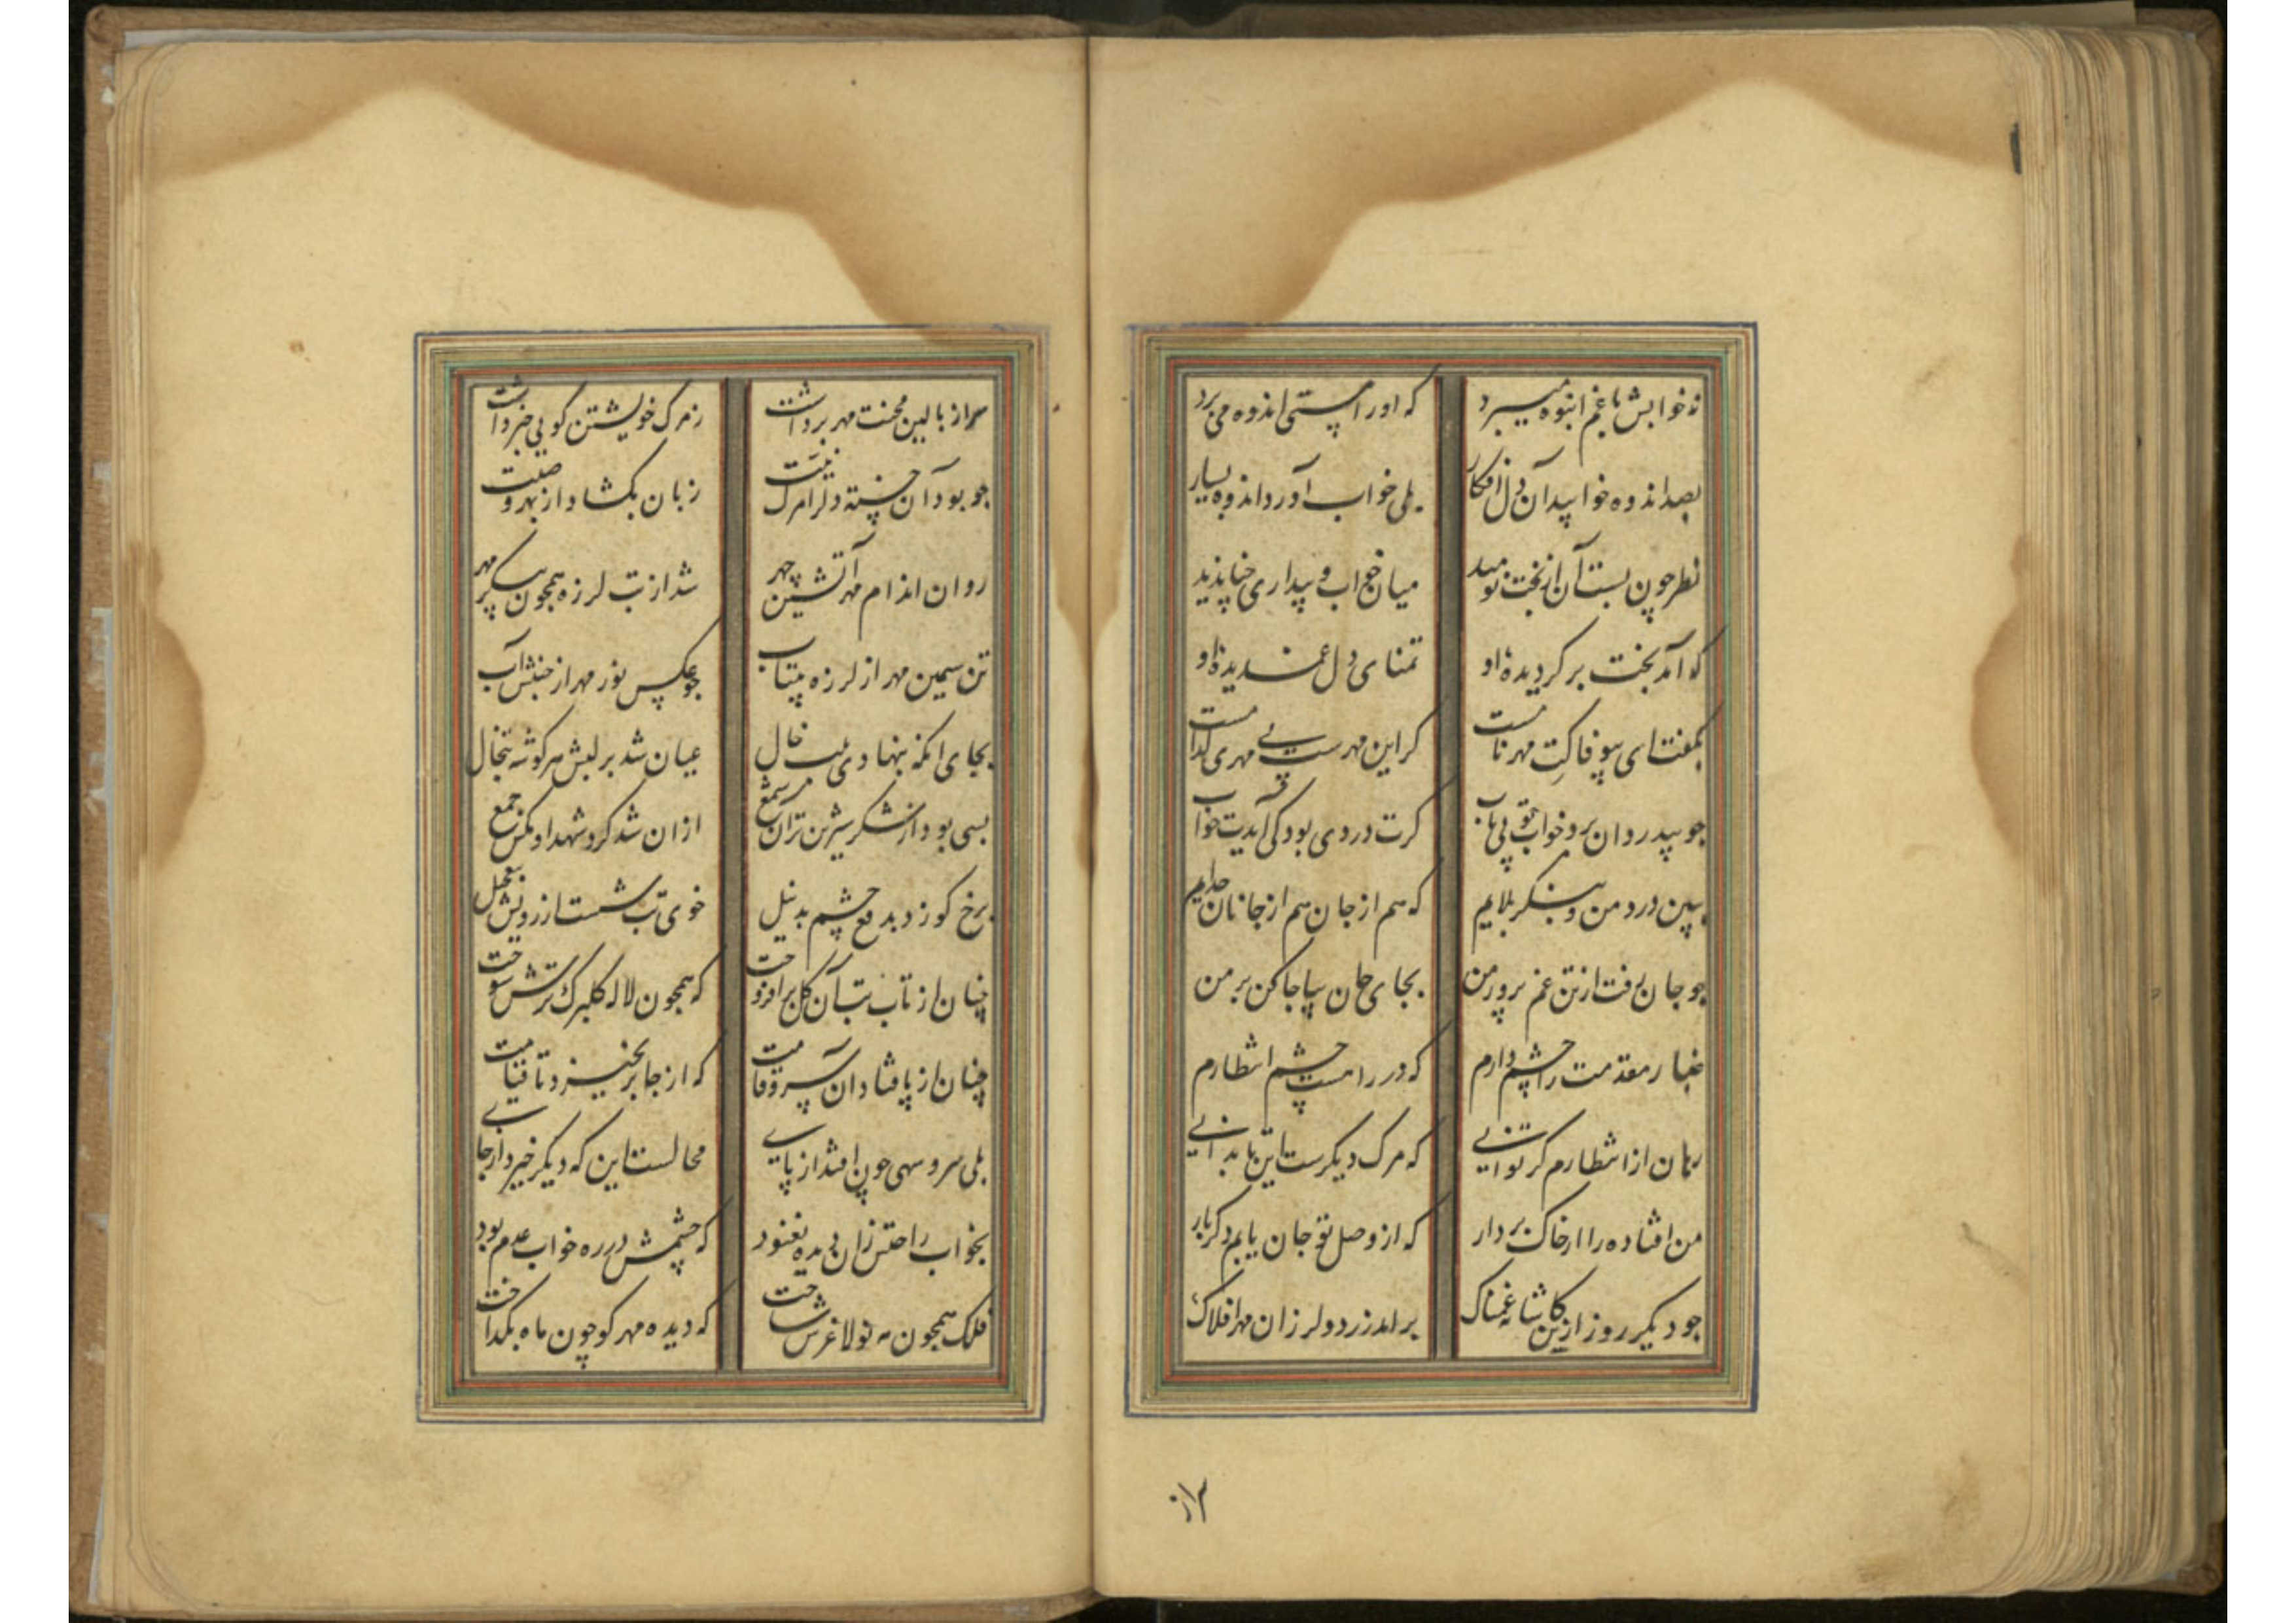 نه خوابش با غم انبوه میبرد که او را مستی اندوه می برد
بصد اندوه خوابید آن دل افکار بلی خواب آورد اندوه بسیار
نظر چون بست آن از بخت نومید میان خواب و بیداری چنان دید
که آمد بخت برکردیده او تمنای دل غمدیده او
بگفت ای بیوفا کت مهر ناست کر این مهرست بی مهری کدامست
چو بیدردان برد خواب تو بی تاب کرت دردی بود کی آیدت خواب
ببین درد من و بنکر بلایم که هم از جان هم از جانان جدایم
چو جان رفت از تن غم پرور من بجای جان بیا جا کن بر من
غبار مقدمت را چشم دارم که در راهت چشم انتظارم
رهان از انتظارم کر توانی که مرک دیکرست این تا بدانی
من افتاده را از خاک بردار که از وصل تو جان یابم دکر بار
چو دیکر روز ازین کاشانه غمناک برامد زرد و لرزان مهر افلاک
سر از
سر از بالین محنت مهر برداشت ز مرک خویشتن کویی خبر داشت
چو بود آن خسته دل را مرک زبان بکشاد از بهر وصیت
روان اندام مهر آتشین چهر شد از تب لرزه همچون پیکر مهر
تن سیمین مهر از لرزه بیتاب چو عکس نور مهر از جنبش آب
بجای انکه بنهادی بلب خال عیان شد بر لبش هر کوشه تبخال
بسی بود از شکر شیرین تر آن شمع از آن شد کرد شهد او مکس جمع
برخ کو زد بدفع چشم بد نیل خوی تب شست از رویش بتعجیل
چنان از تاب تب آن کل برافروخت که همچون لاله کلبرک ترش سوخت
چنان از پا فتاد آن سرو قامت که از جا برنخیزد تا قیامت
بلی سرو سهی چون افتد از پای محالست این که دیکر خیزد از جای
بخواب راحتش زان دیده نغنود که چشمش در ره خواب عدم بود
فلک همچون مه نو لاغرش ساخت که دیده مهر کو چون ماه بکداخت